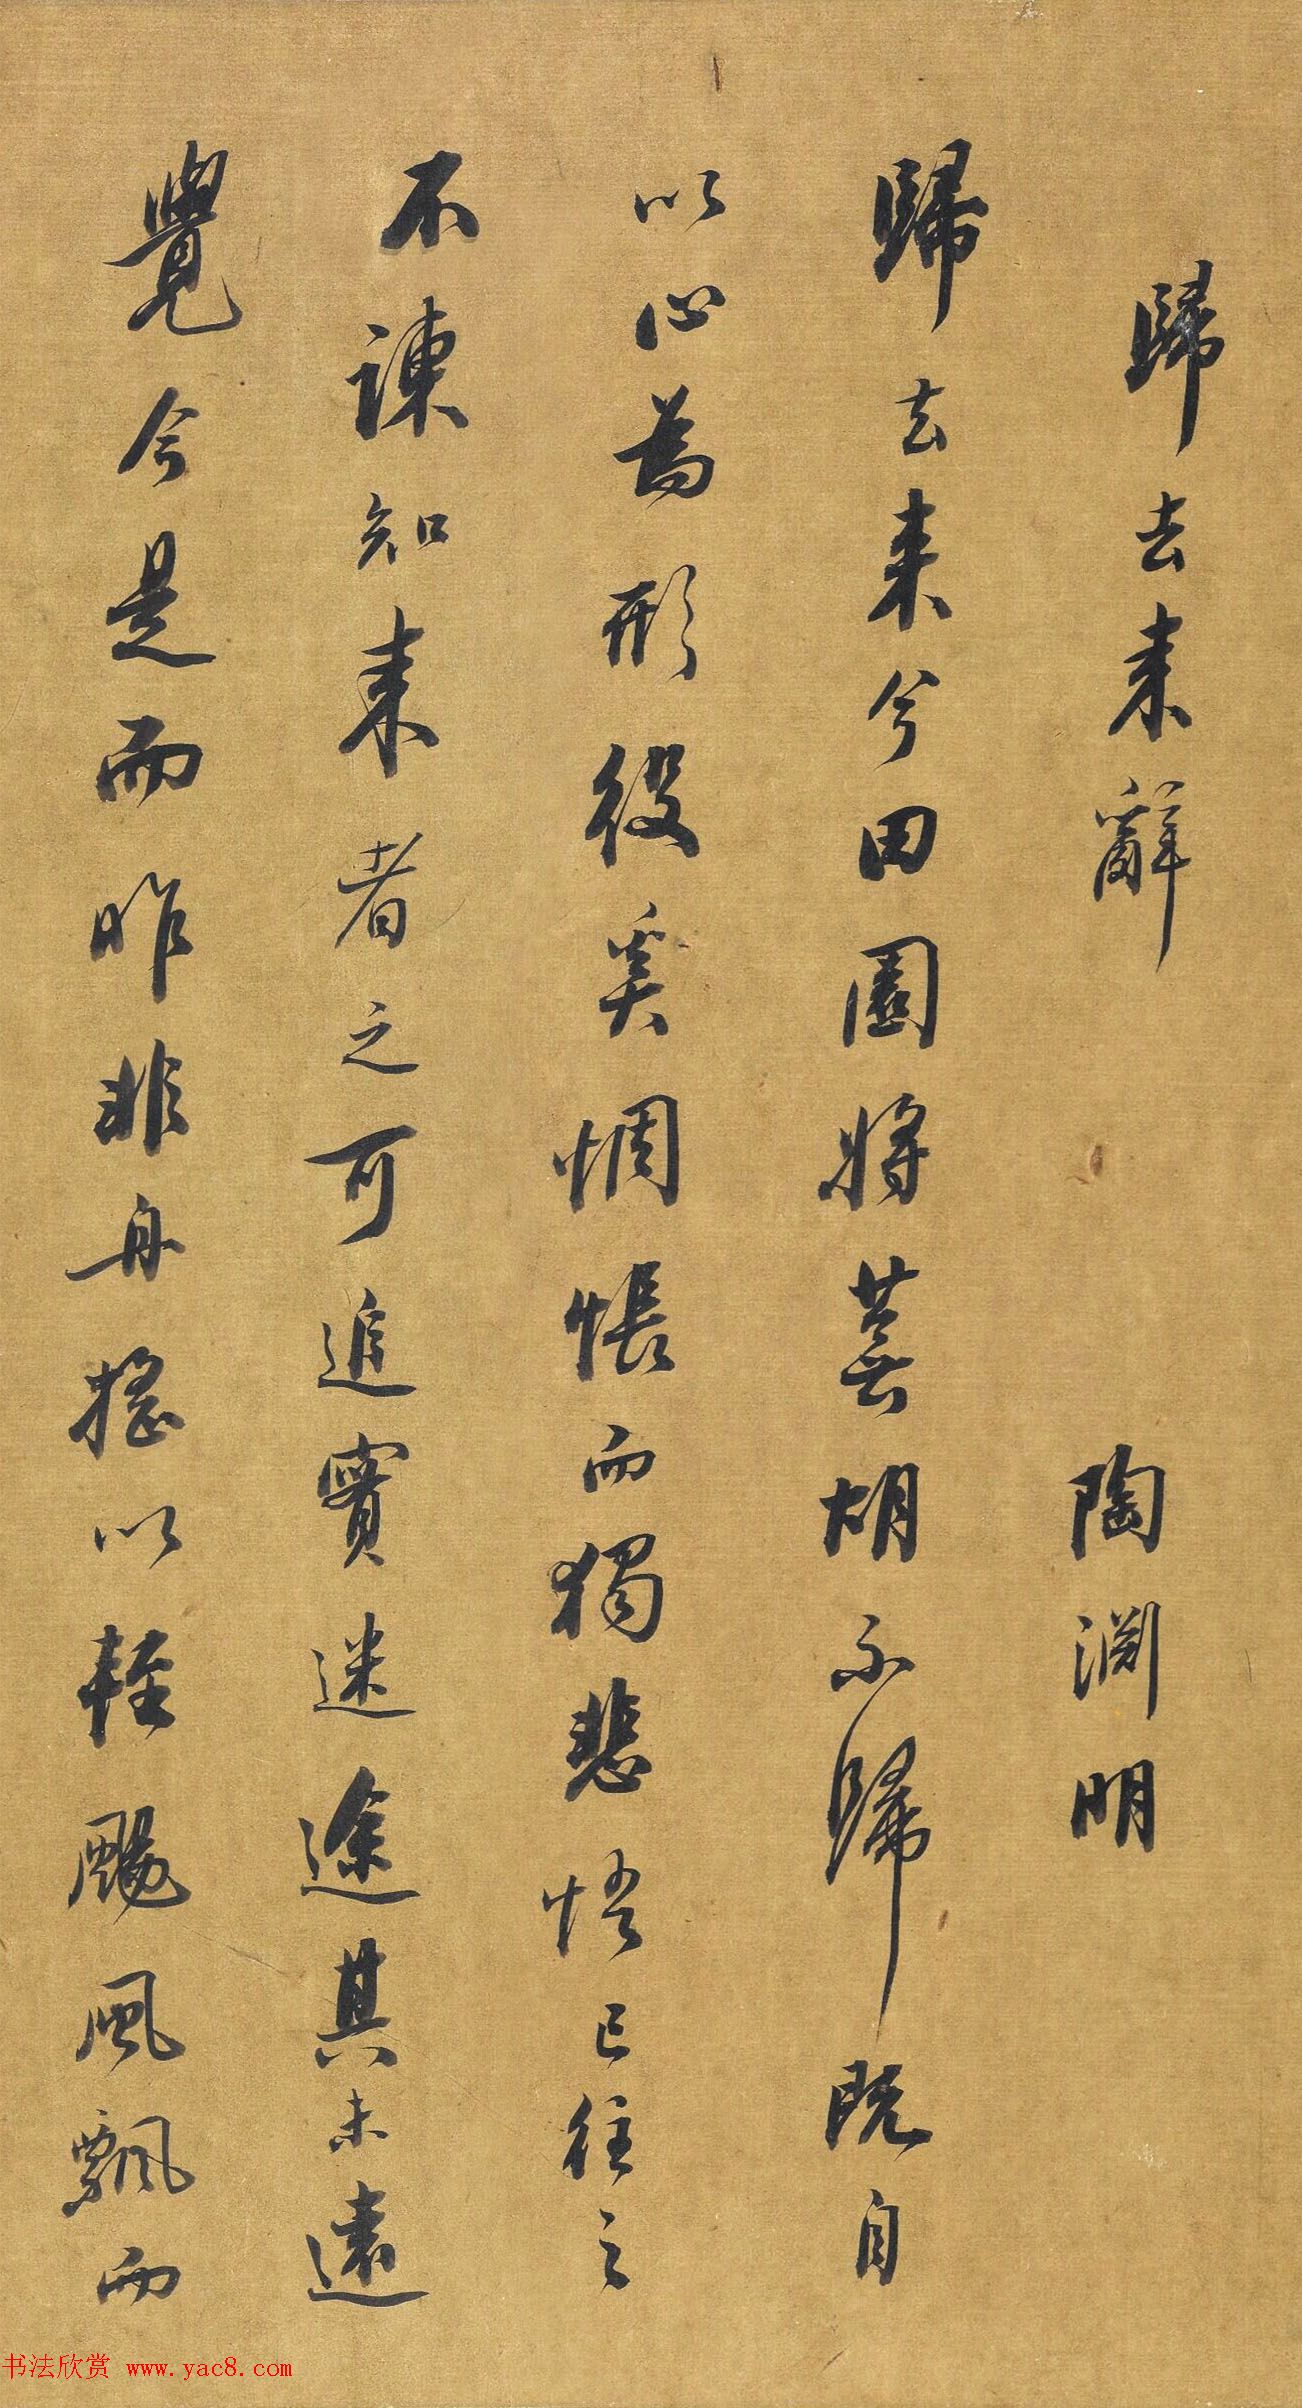 歸去来辭 陶淵明
歸去来兮田園将蕪胡不歸既自
以心為形役奚惆悵而獨悲悟已往之
不諫知来者之可追寔迷途其未遠
覺今是而昨非舟搖以輕颺風飄而
书法欣赏 www.yac8.com